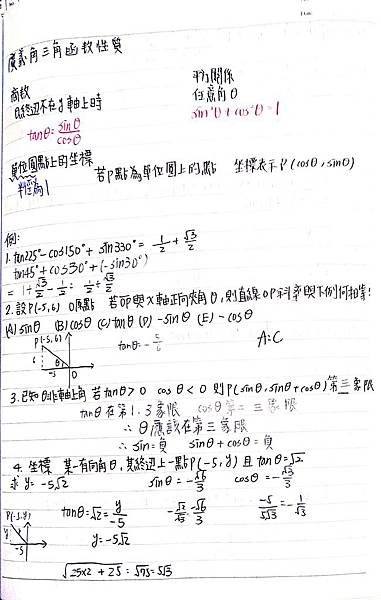 廣義角三角函數性質
商數 平方關係
θ終邊不在y軸上時 任意角θ
tanθ = sinθ/cosθ sin²θ + cos²θ = 1
單位圓上的坐標 若P點為單位圓上的點 坐標表示P(cosθ, sinθ)
半徑為1
例:
1. tan225° - cos150° + sin330° = 1/2 + √3/2
tan45° + cos30° + (-sin30°)
= 1 + √3/2 - 1/2 = 1/2 + √3/2
2. 設P(-5,6) O原點 若OP與x軸正向夾角θ,則直線OP斜率與下例何相等?
(A) sinθ (B) cosθ (C) tanθ (D) -sinθ (E) -cosθ
P(-5,6)
tanθ = -6/5 A:C
6
-5 O
3. 已知θ非軸上角 若tanθ>0 cosθ<0 則P(sinθ, sinθ+cosθ)第三象限
tanθ在第1.3象限 cosθ第二三象限
∴ θ應該在第三象限
∴ sin=負 sinθ+cosθ=負
4. 坐標 某一有向角θ,其終邊上一點P(-5,y) 且tanθ=√2
求y= -5√2 sinθ = -√6/3 cosθ = -√3/3
P(-5,y)
tanθ=√2= y/-5 -√2/√3 = -√6/3 -5/5√3 = -1/√3
y
-5
y=-5√2
√25×2+25 = √75 = 5√3